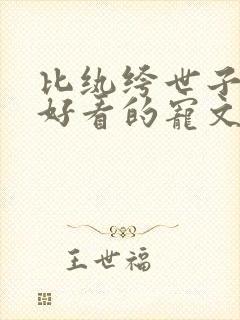 比纨绔世子
好看的宠文
王世福